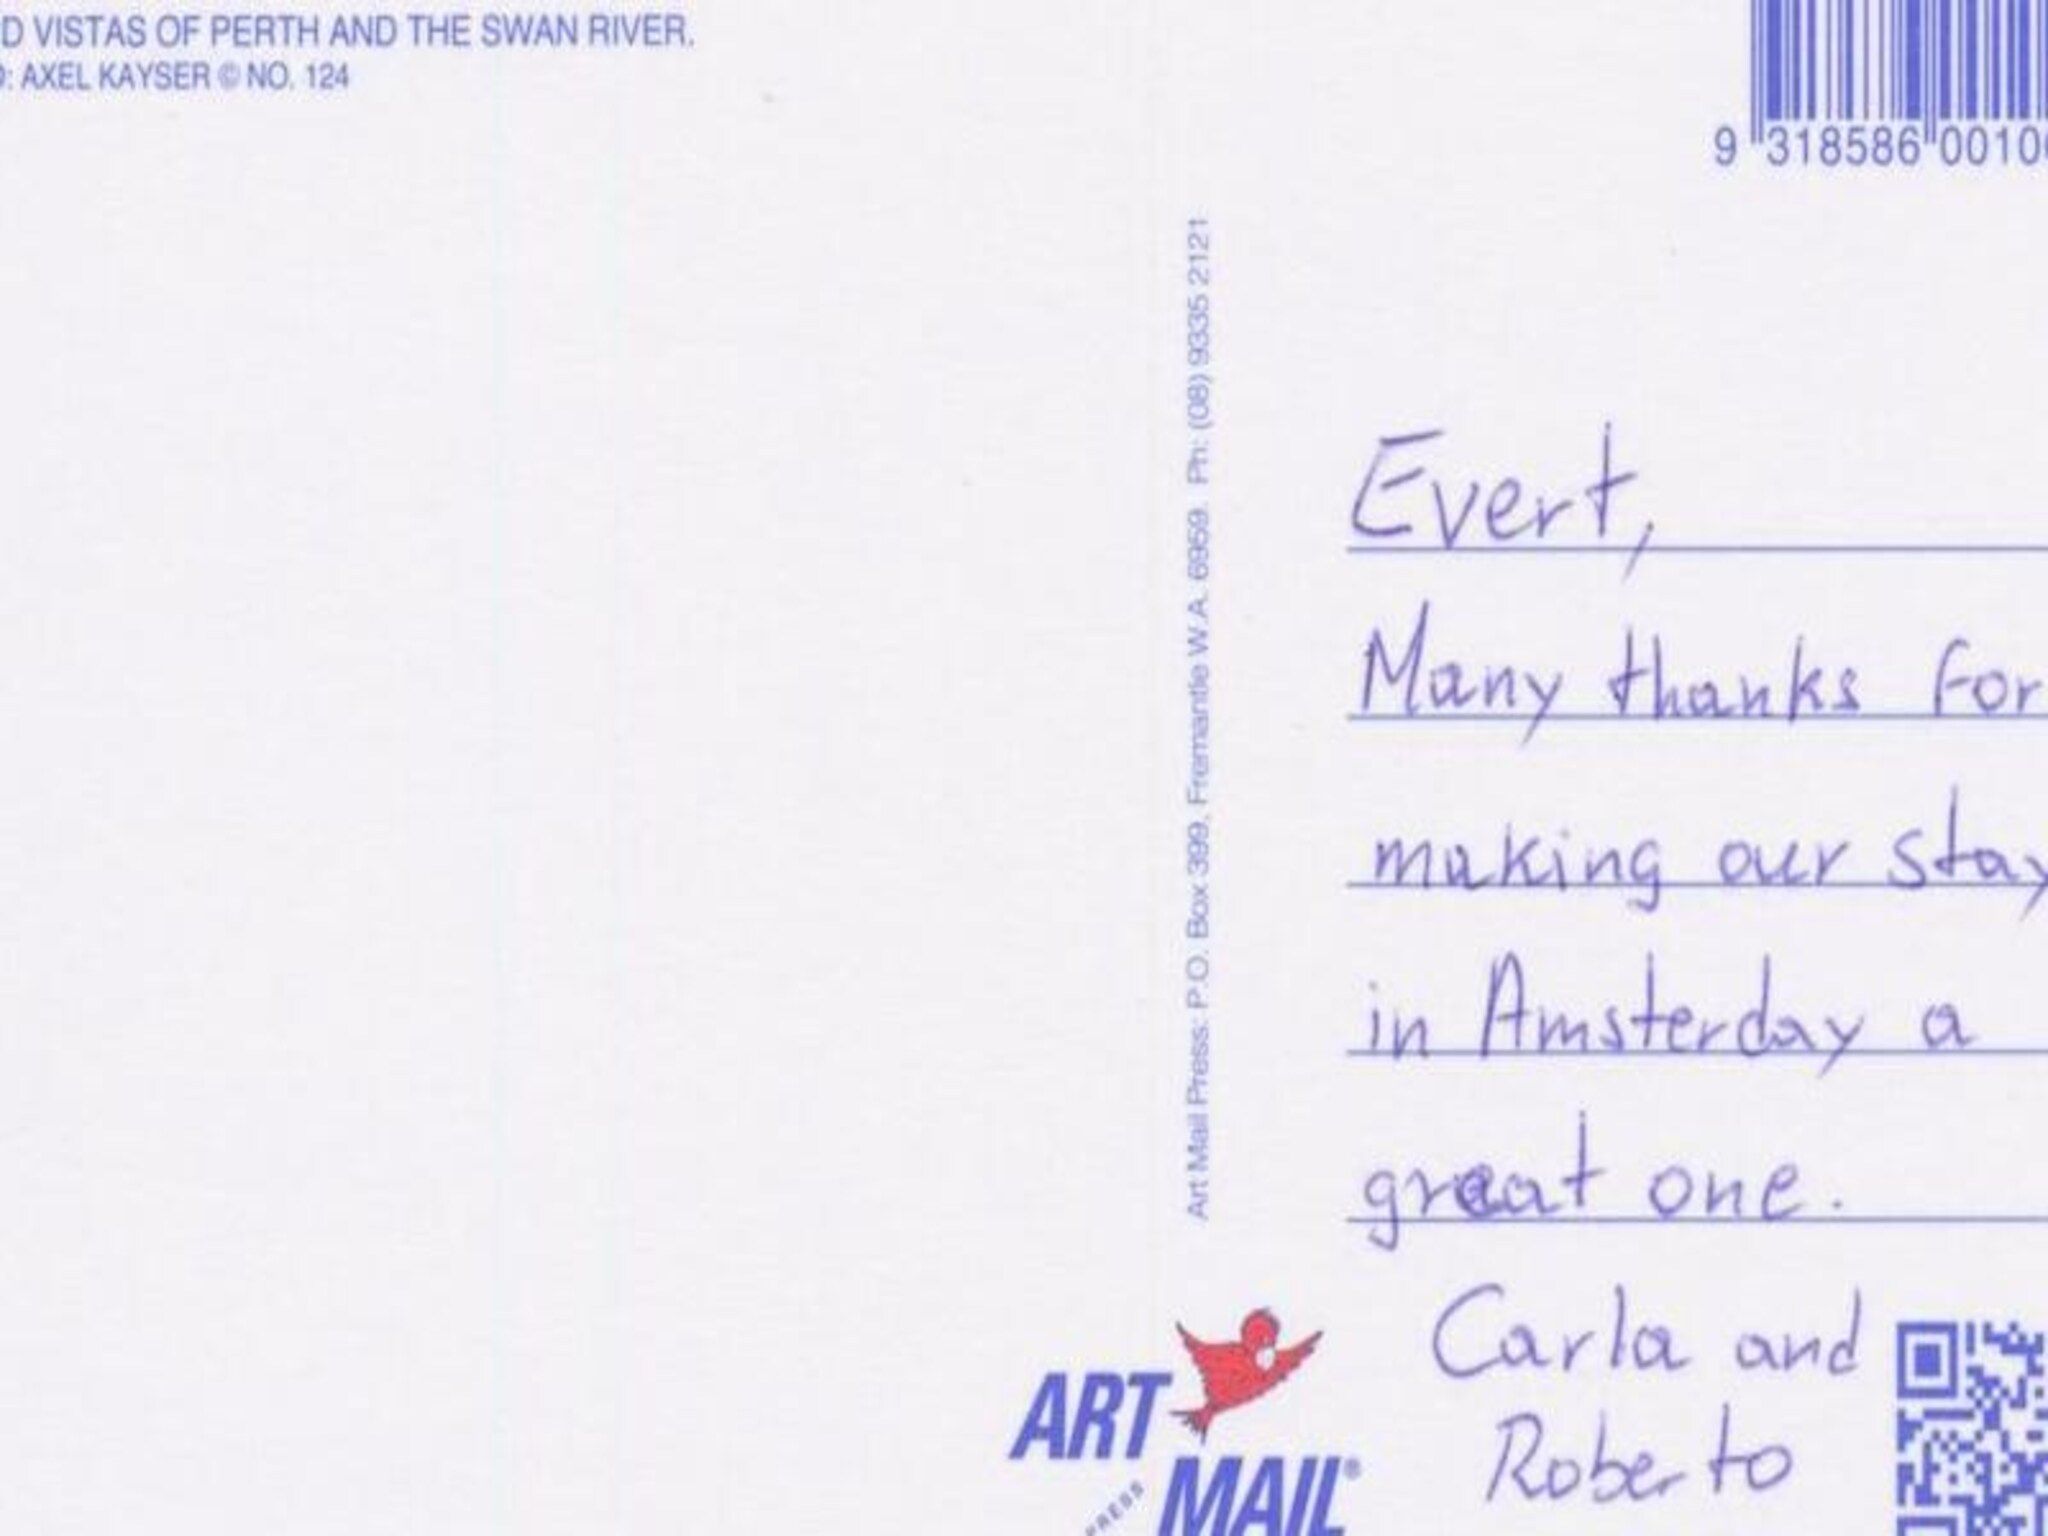 D VISTAS OF PERTH AND THE SWAN RIVER.
: AXEL KAYSER © NO. 124
9 318586 0010
Art Mail Press: P.O. Box 399, Fremantle W.A. 6959. Ph: (08) 9335 2121
Evert,
Many thanks for
making our stay
in Amsterday a
great one.
Carla and
Roberto
ART
MAIL®
PRESS